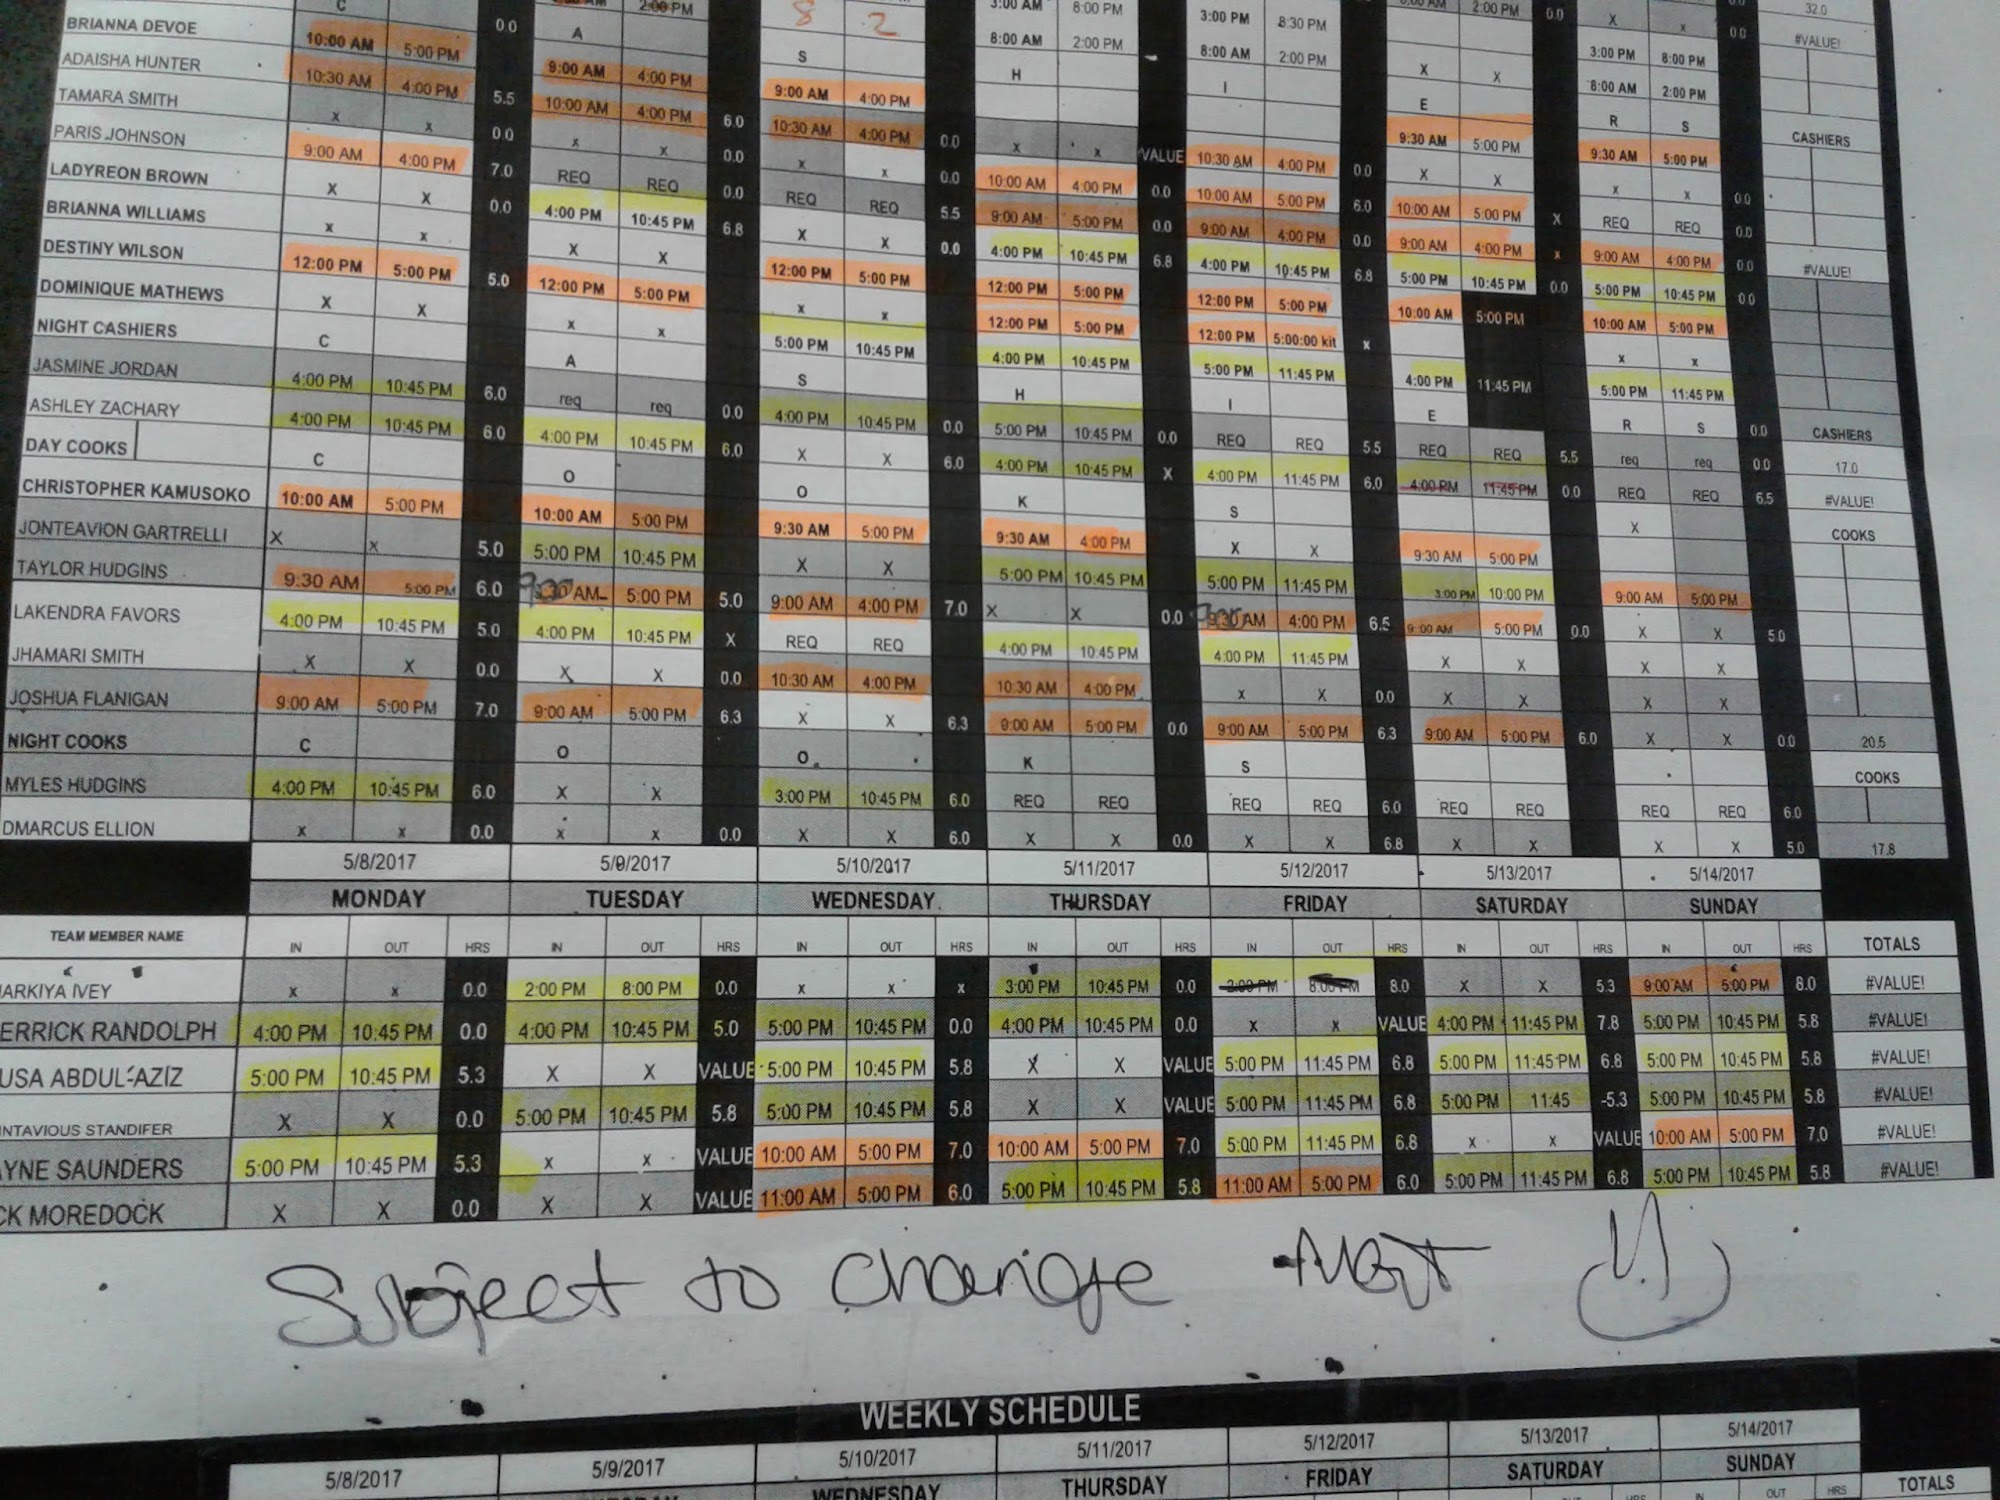 2:00 PM 8 2 3:00 AM 8:00 PM 3:00 PM 8:30 PM 2:00 PM 0.0 X x 0.0 32.0
8:00 AM 2:00 PM 8:00 AM 2:00 PM X X 3:00 PM 8:00 PM #VALUE!
8:00 AM 2:00 PM
C 0.0 A S H I E R S CASHIERS
BRIANNA DEVOE 10:00 AM 5:00 PM 9:00 AM 4:00 PM 9:00 AM 4:00 PM 9:30 AM 5:00 PM 9:30 AM 5:00 PM
ADAISHA HUNTER 10:30 AM 4:00 PM 5.5 10:00 AM 4:00 PM 6.0 10:30 AM 4:00 PM 0.0 x x VALUE 10:30 AM 4:00 PM 0.0 X X x x 0.0
TAMARA SMITH x x 0.0 x x 0.0 x x 0.0 10:00 AM 4:00 PM 0.0 10:00 AM 5:00 PM 6.0 10:00 AM 5:00 PM X REQ REQ 0.0
PARIS JOHNSON 9:00 AM 4:00 PM 7.0 REQ REQ 0.0 REQ REQ 5.5 9:00 AM 5:00 PM 0.0 9:00 AM 4:00 PM 0.0 9:00 AM 4:00 PM x 9:00 AM 4:00 PM 0.0
LADYREON BROWN X X 0.0 4:00 PM 10:45 PM 6.8 X X 0.0 4:00 PM 10:45 PM 6.8 4:00 PM 10:45 PM 6.8 5:00 PM 10:45 PM 0.0 5:00 PM 10:45 PM 0.0 #VALUE!
BRIANNA WILLIAMS x x X X 12:00 PM 5:00 PM 12:00 PM 5:00 PM 12:00 PM 5:00 PM 10:00 AM 5:00 PM 10:00 AM 5:00 PM
DESTINY WILSON 12:00 PM 5:00 PM 5.0 12:00 PM 5:00 PM x x 12:00 PM 5:00 PM 12:00 PM 5:00:00 kit x x x
DOMINIQUE MATHEWS X X x x 5:00 PM 10:45 PM 4:00 PM 10:45 PM 5:00 PM 11:45 PM 4:00 PM 11:45 PM 5:00 PM 11:45 PM
NIGHT CASHIERS C A S H I E R S 0.0 CASHIERS
JASMINE JORDAN 4:00 PM 10:45 PM 6.0 req req 0.0 4:00 PM 10:45 PM 0.0 5:00 PM 10:45 PM 0.0 REQ REQ 5.5 REQ REQ 5.5 req req 0.0 17.0
ASHLEY ZACHARY 4:00 PM 10:45 PM 6.0 4:00 PM 10:45 PM 6.0 X X 6.0 4:00 PM 10:45 PM X 4:00 PM 11:45 PM 6.0 4:00 PM 11:45 PM 0.0 REQ REQ 6.5 #VALUE!
DAY COOKS C O O K S COOKS
CHRISTOPHER KAMUSOKO 10:00 AM 5:00 PM 10:00 AM 5:00 PM 9:30 AM 5:00 PM 9:30 AM 4:00 PM X X 9:30 AM 5:00 PM X
JONTEAVION GARTRELLI X X 5.0 5:00 PM 10:45 PM X X 5:00 PM 10:45 PM 5:00 PM 11:45 PM 3:00 PM 10:00 PM 9:00 AM 5:00 PM
TAYLOR HUDGINS 9:30 AM 5:00 PM 6.0 AM 5:00 PM 5.0 9:00 AM 4:00 PM 7.0 X X 0.0 AM 4:00 PM 6.5 9:00 AM 5:00 PM 0.0 X X 5.0
LAKENDRA FAVORS 4:00 PM 10:45 PM 5.0 4:00 PM 10:45 PM X REQ REQ 4:00 PM 10:45 PM 4:00 PM 11:45 PM X X X X
JHAMARI SMITH X X 0.0 X X 0.0 10:30 AM 4:00 PM 10:30 AM 4:00 PM x X 0.0 X X X X
JOSHUA FLANIGAN 9:00 AM 5:00 PM 7.0 9:00 AM 5:00 PM 6.3 X X 6.3 9:00 AM 5:00 PM 0.0 9:00 AM 5:00 PM 6.3 9:00 AM 5:00 PM 6.0 X X 0.0 20.5
NIGHT COOKS C O O K S COOKS
MYLES HUDGINS 4:00 PM 10:45 PM 6.0 X X 3:00 PM 10:45 PM 6.0 REQ REQ REQ REQ 6.0 REQ REQ REQ REQ 6.0
DMARCUS ELLION x x 0.0 x x 0.0 X X 6.0 X X 0.0 X X 6.8 X X X X 5.0 17.8
5/8/2017 5/9/2017 5/10/2017 5/11/2017 5/12/2017 5/13/2017 5/14/2017
MONDAY TUESDAY WEDNESDAY THURSDAY FRIDAY SATURDAY SUNDAY
TEAM MEMBER NAME IN OUT HRS IN OUT HRS IN OUT HRS IN OUT HRS IN OUT HRS IN OUT HRS IN OUT HRS TOTALS
ARKIYA IVEY x x 0.0 2:00 PM 8:00 PM 0.0 x x x 3:00 PM 10:45 PM 0.0 2:00 PM 8:00 PM 8.0 X X 5.3 9:00 AM 5:00 PM 8.0 #VALUE!
ERRICK RANDOLPH 4:00 PM 10:45 PM 0.0 4:00 PM 10:45 PM 5.0 5:00 PM 10:45 PM 0.0 4:00 PM 10:45 PM 0.0 x x VALUE 4:00 PM 11:45 PM 7.8 5:00 PM 10:45 PM 5.8 #VALUE!
USA ABDUL-AZIZ 5:00 PM 10:45 PM 5.3 X X VALUE 5:00 PM 10:45 PM 5.8 X X VALUE 5:00 PM 11:45 PM 6.8 5:00 PM 11:45 PM 6.8 5:00 PM 10:45 PM 5.8 #VALUE!
NTAVIOUS STANDIFER X X 0.0 5:00 PM 10:45 PM 5.8 5:00 PM 10:45 PM 5.8 X X VALUE 5:00 PM 11:45 PM 6.8 5:00 PM 11:45 -5.3 5:00 PM 10:45 PM 5.8 #VALUE!
AYNE SAUNDERS 5:00 PM 10:45 PM 5.3 X X VALUE 10:00 AM 5:00 PM 7.0 10:00 AM 5:00 PM 7.0 5:00 PM 11:45 PM 6.8 x x VALUE 10:00 AM 5:00 PM 7.0 #VALUE!
CK MOREDOCK X X 0.0 X X VALUE 11:00 AM 5:00 PM 6.0 5:00 PM 10:45 PM 5.8 11:00 AM 5:00 PM 6.0 5:00 PM 11:45 PM 6.8 5:00 PM 10:45 PM 5.8 #VALUE!
Subject to change
WEEKLY SCHEDULE
5/8/2017 5/9/2017 5/10/2017 5/11/2017 5/12/2017 5/13/2017 5/14/2017
TUESDAY WEDNESDAY THURSDAY FRIDAY SATURDAY SUNDAY
OUT HRS IN OUT HRS TOTALS